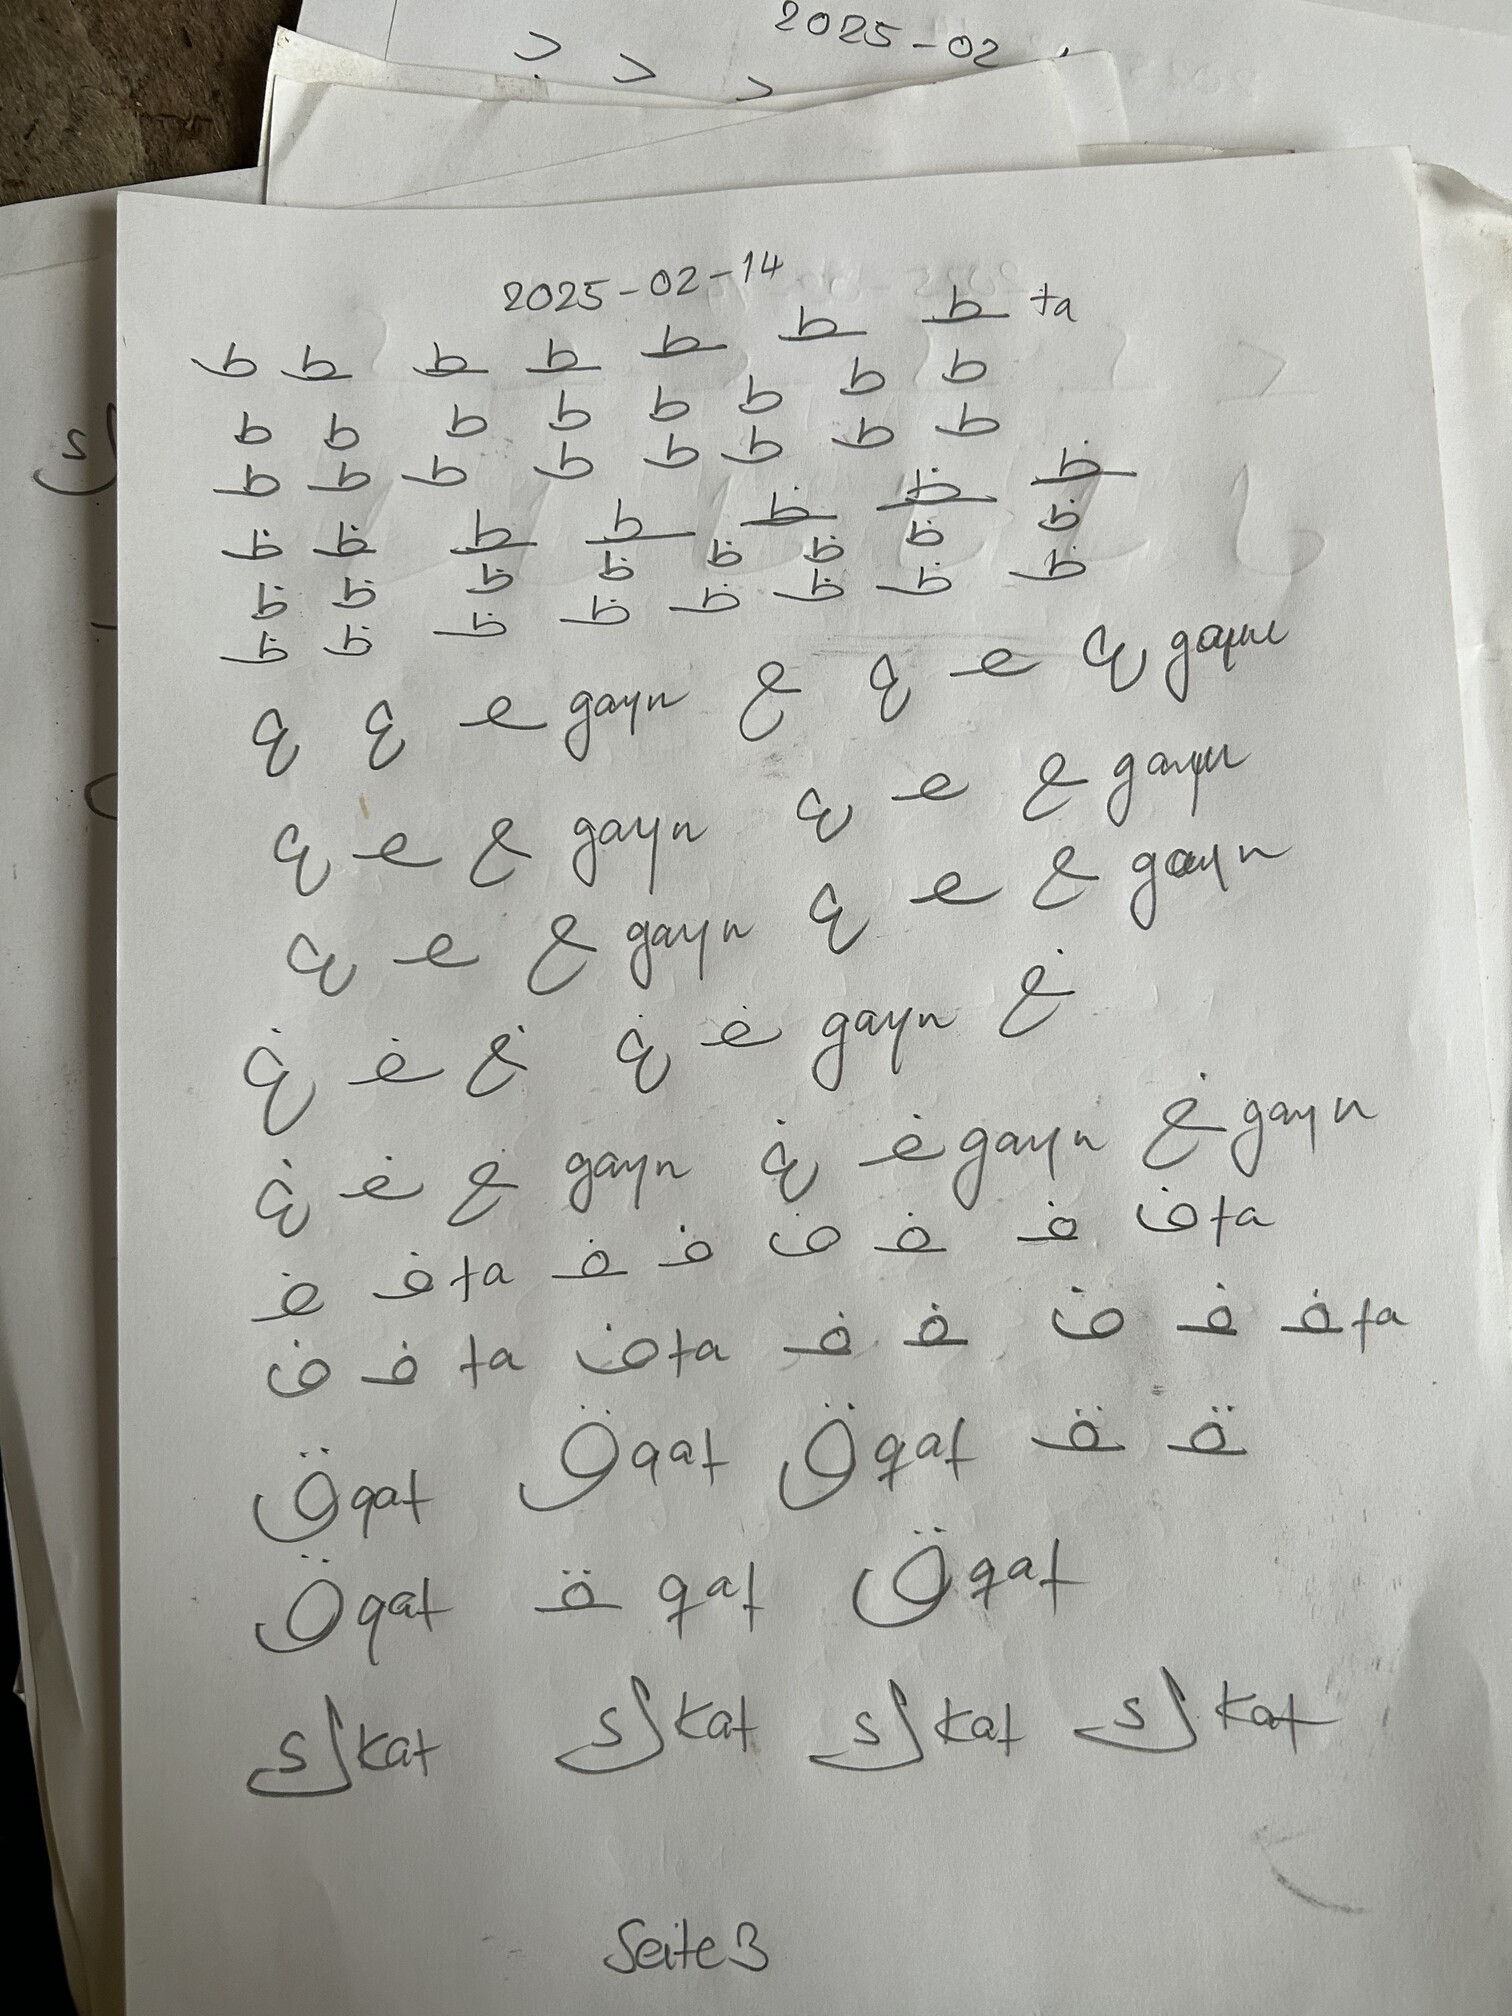 2025-02
2025-02-14
ط ط ط ط ط ط ط ta
ط ط ط ط ط ط ط ط
ط ط ط ط ط ط ط ط
ظ ظ ط ط ظ ظ ظ
ظ ظ ظ ظ ظ ظ ظ ظ
ظ ظ ظ ظ ظ ظ ظ ظ
ع ع عـ gayn ع ع عـ ع gayn
ع عـ ع gayn ع عـ ع gayn
ع عـ ع gayn ع عـ ع gayn
غ غـ غ غ غـ gayn غ
غ غـ غ gayn غ غـ gayn غ gayn
ف ف fa ف ف ف ف ف ف fa
ف ف fa ف fa ف ف ف ف ف fa
ق qaf ق qaf ق qaf ق ق
ق qaf ق qaf ق qaf
ك kaf ك kaf ك kaf ك kaf
Seite 3